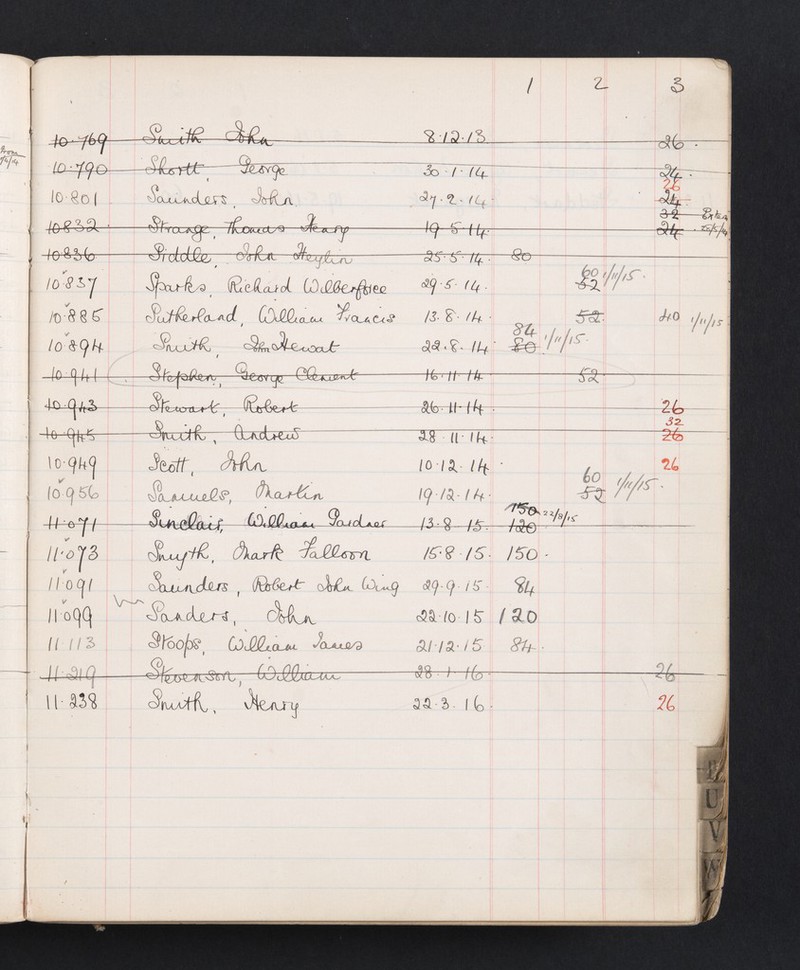 1 2 3
10·769 Smith John 8·12·13 26·
10·790 Shortt, George 30·1·14 24·
26
10·801 Saunders, John 27·2·14 24·
32 Extra
10832 Strange, Thomas Henry 19·5·14 24·
10836 Siddle, John Heylin 25·5·14 80
60 1/11/15·
10·837 Sparks, Richard Wilberforce 29·5·14 52
10·885 Sutherland, William Francis 13·8·14 52 40 1/11/15
84 1/11/15·
10·894 Smith, John Stewat 22·8·14 80
10·941 Stephen, George Clement 16·11·14 52
10·943 Stewart, Robert 26·11·14 26
32
10·945 Smith, Andrew 28·11·14 26
10·949 Scott, John 10·12·14 26
60 1/11/15·
10·956 Samuels, Martin 19·12·14 52
150 22/8/15
11·071 Sinclair, William Gardner 13·8·15 120
11·073 Smyth, Mark Falloon 15·8·15 150·
11·091 Saunders, Robert John Wing 29·9·15 84
11·099 Sanders, John 22·10·15 120
11·113 Stoops, William James 21·12·15 84
11·219 Stevenson, William 28·1·16 26
11·238 Smith, Henry 22·3·16 26
U
V
W